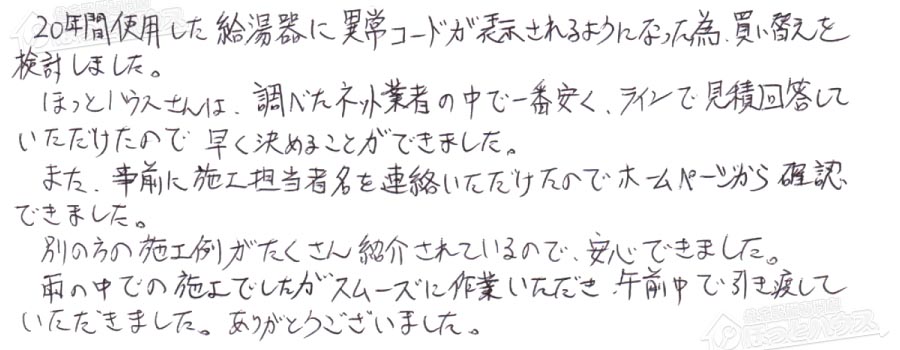 20年間使用した給湯器に異常コードが表示されるようになった為、買い替えを
検討しました。
ほっとハウスさんは、調べたネット業者の中で一番安く、ラインで見積回答して
いただけたので早く決めることができました。
また、事前に施工担当者名を連絡いただけたのでホームページから確認
できました。
別の方の施工例がたくさん紹介されているので、安心できました。
雨の中での施工でしたがスムーズに作業いただき、午前中で引き渡して
いただきました。ありがとうございました。
ほっとハウス